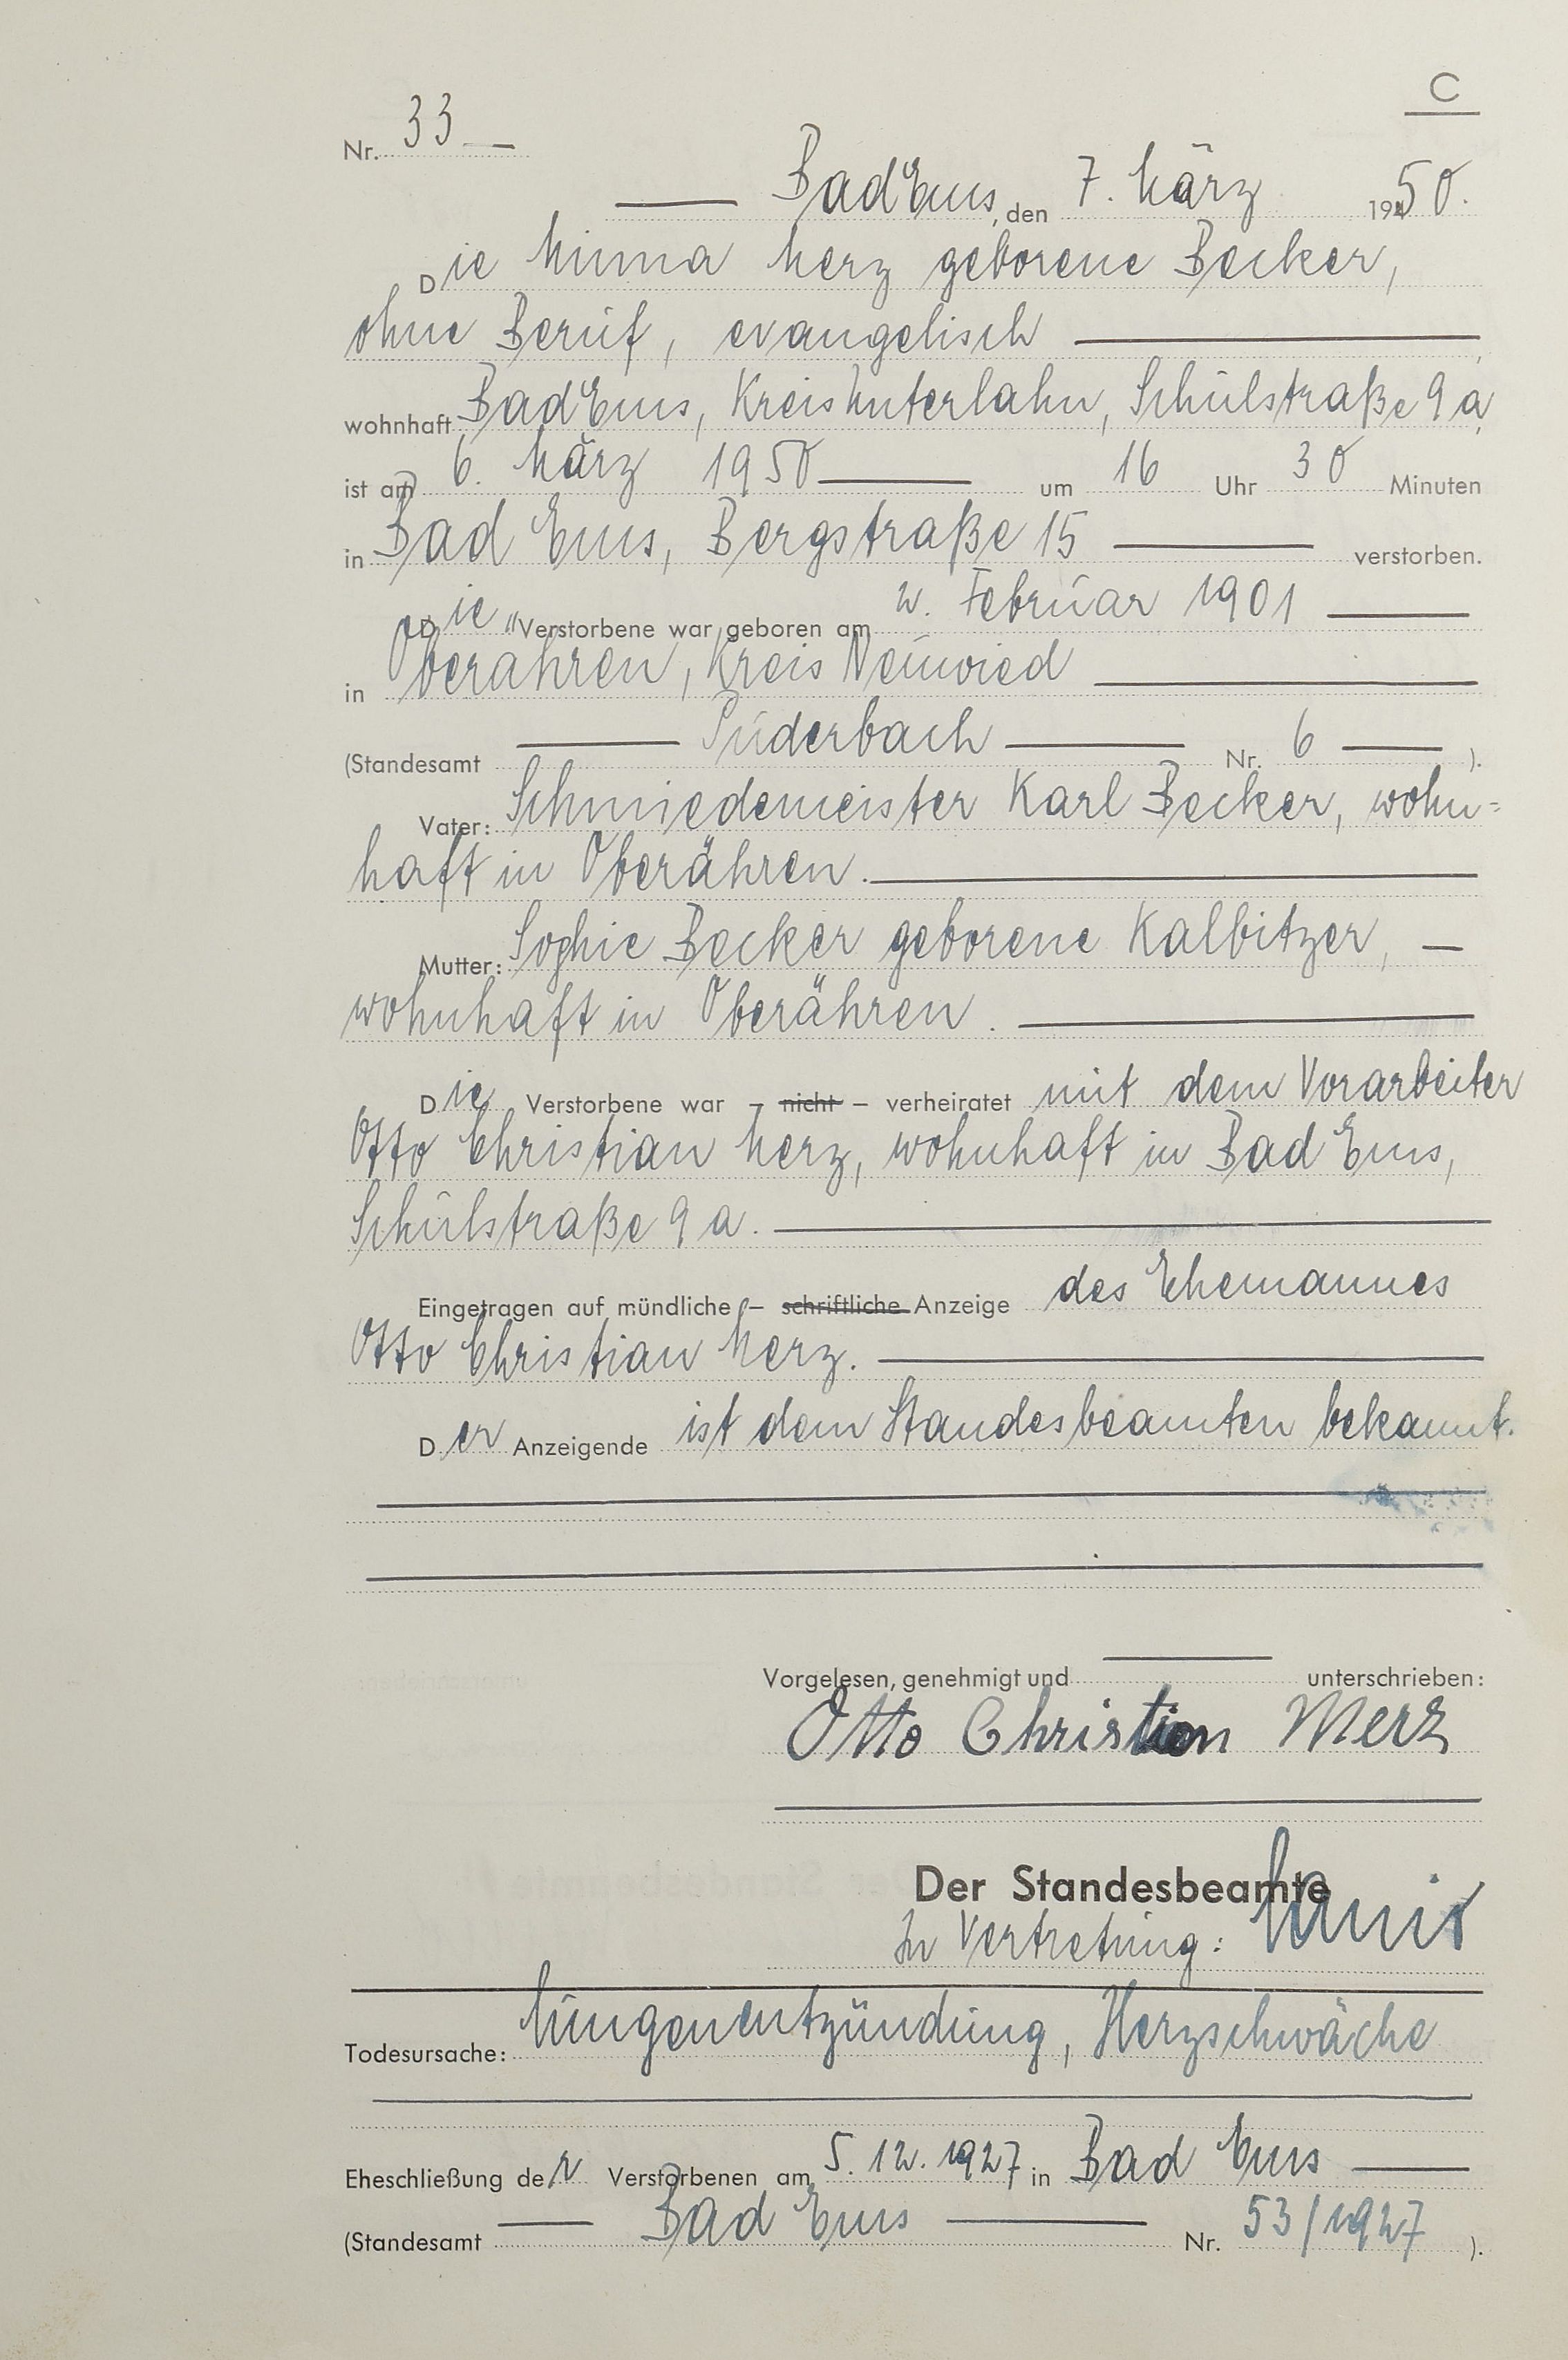 C
Nr. 33
Bad Ems, den 7. März 1950.
Die Minna Merz geborene Becker,
ohne Beruf, evangelisch
wohnhaft Bad Ems, Kreis Unterlahn, Schulstraße 9 a,
ist am 6. März 1950 um 16 Uhr 30 Minuten
in Bad Ems, Bergstraße 15 verstorben.
Die Verstorbene war geboren am 2. Februar 1901
in Oberähren, Kreis Neuwied
(Standesamt Puderbach Nr. 6 ).
Vater: Schmiedemeister Karl Becker, wohn=
haft in Oberähren.
Mutter: Sophie Becker geborene Kalbitzer,
wohnhaft in Oberähren.
Die Verstorbene war – nicht – verheiratet mit dem Vorarbeiter
Otto Christian Merz, wohnhaft in Bad Ems,
Schulstraße 9 a.
Eingetragen auf mündliche – schriftliche Anzeige des Ehemannes
Otto Christian Merz.
Der Anzeigende ist dem Standesbeamten bekannt.
Vorgelesen, genehmigt und unterschrieben:
Otto Christian Merz
Der Standesbeamte
In Vertretung:
Todesursache: Lungenentzündung, Herzschwäche
Eheschließung der Verstorbenen am 5. 12. 1927 in Bad Ems
(Standesamt Bad Ems Nr. 53/1927 ).